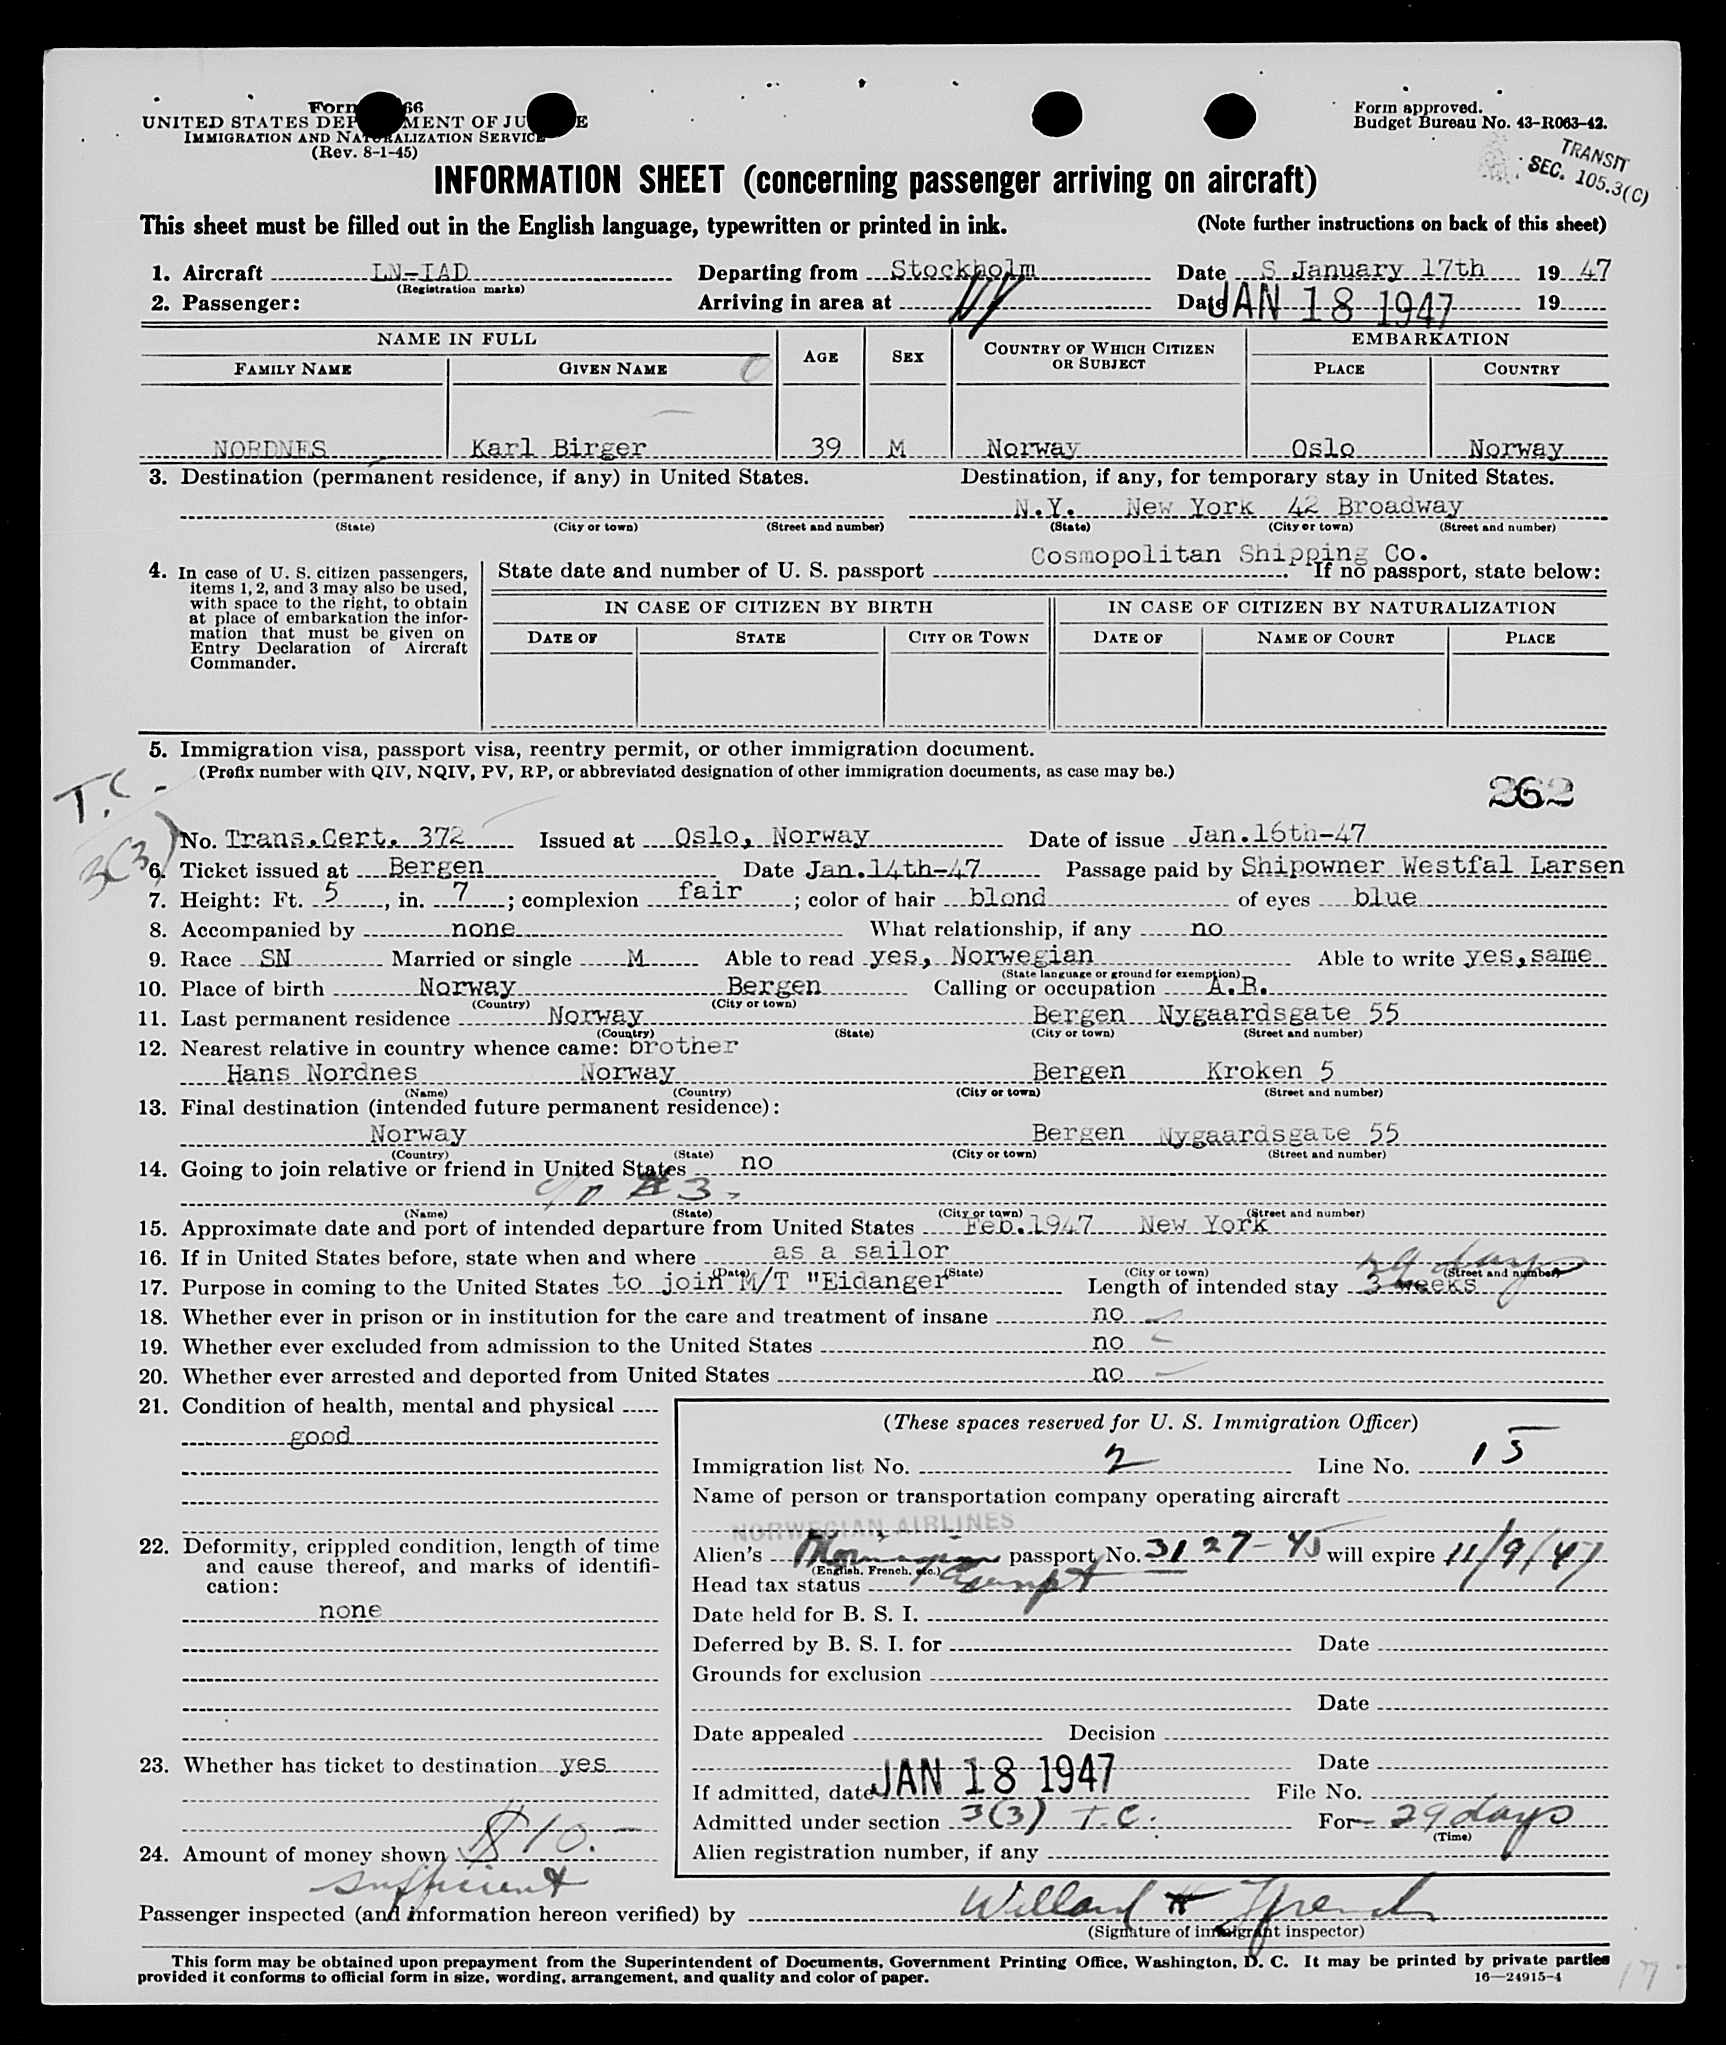 Form 66
UNITED STATES DEPARTMENT OF JUSTICE
IMMIGRATION AND NATURALIZATION SERVICE
(Rev. 8-1-45)
Form approved.
Budget Bureau No. 43-R063-42.
TRANSIT
SEC. 105.3(C)
INFORMATION SHEET (concerning passenger arriving on aircraft)
This sheet must be filled out in the English language, typewritten or printed in ink. (Note further instructions on back of this sheet)
1. Aircraft LN-IAD Departing from Stockholm Date S January 17th 1947
(Registration marks)
2. Passenger: Arriving in area at NY Date JAN 18 1947 19
NAME IN FULL AGE SEX COUNTRY OF WHICH CITIZEN OR SUBJECT EMBARKATION
FAMILY NAME GIVEN NAME PLACE COUNTRY
NORDNES Karl Birger 39 M Norway Oslo Norway
3. Destination (permanent residence, if any) in United States. Destination, if any, for temporary stay in United States.
N.Y. New York 42 Broadway
(State) (City or town) (Street and number) (State) (City or town) (Street and number)
Cosmopolitan Shipping Co.
4. In case of U. S. citizen passengers, items 1, 2, and 3 may also be used, with space to the right, to obtain at place of embarkation the information that must be given on Entry Declaration of Aircraft Commander.
State date and number of U. S. passport . If no passport, state below:
IN CASE OF CITIZEN BY BIRTH IN CASE OF CITIZEN BY NATURALIZATION
DATE OF STATE CITY OR TOWN DATE OF NAME OF COURT PLACE
5. Immigration visa, passport visa, reentry permit, or other immigration document.
(Prefix number with QIV, NQIV, PV, RP, or abbreviated designation of other immigration documents, as case may be.)
T.C.
3(3)
262
No. Trans.Cert. 372 Issued at Oslo, Norway Date of issue Jan.16th-47
6. Ticket issued at Bergen Date Jan.14th-47 Passage paid by Shipowner Westfal Larsen
7. Height: Ft. 5, in. 7; complexion fair; color of hair blond of eyes blue
8. Accompanied by none What relationship, if any no
9. Race SN Married or single M Able to read yes, Norwegian Able to write yes,same
(State language or ground for exemption)
10. Place of birth Norway Bergen Calling or occupation A.B.
(Country) (City or town)
11. Last permanent residence Norway Bergen Nygaardsgate 55
(Country) (State) (City or town) (Street and number)
12. Nearest relative in country whence came: brother
Hans Nordnes Norway Bergen Kroken 5
(Name) (Country) (City or town) (Street and number)
13. Final destination (intended future permanent residence):
Norway Bergen Nygaardsgate 55
(Country) (State) (City or town) (Street and number)
14. Going to join relative or friend in United States no
c/o #3
(Name) (State) (City or town) (Street and number)
15. Approximate date and port of intended departure from United States Feb.1947 New York
16. If in United States before, state when and where as a sailor
(Date) (State) (City or town) (Street and number)
29 days
17. Purpose in coming to the United States to join M/T "Eidanger Length of intended stay 3 weeks
18. Whether ever in prison or in institution for the care and treatment of insane no
19. Whether ever excluded from admission to the United States no
20. Whether ever arrested and deported from United States no
21. Condition of health, mental and physical
good
22. Deformity, crippled condition, length of time and cause thereof, and marks of identification:
none
23. Whether has ticket to destination yes
24. Amount of money shown $10.-
sufficient
(These spaces reserved for U. S. Immigration Officer)
Immigration list No. 2 Line No. 15
Name of person or transportation company operating aircraft
NORWEGIAN AIRLINES
Alien's Norwegian passport No. 3127-45 will expire 11/9/47
(English, French, etc.)
Head tax status Exempt
Date held for B. S. I.
Deferred by B. S. I. for Date
Grounds for exclusion
Date
Date appealed Decision
Date
If admitted, date JAN 18 1947 File No.
Admitted under section 3(3) T.C. For 29 days
(Time)
Alien registration number, if any
Passenger inspected (and information hereon verified) by Willard H
(Signature of immigrant inspector)
This form may be obtained upon prepayment from the Superintendent of Documents, Government Printing Office, Washington, D. C. It may be printed by private parties
provided it conforms to official form in size, wording, arrangement, and quality and color of paper. 16—24915-4
17